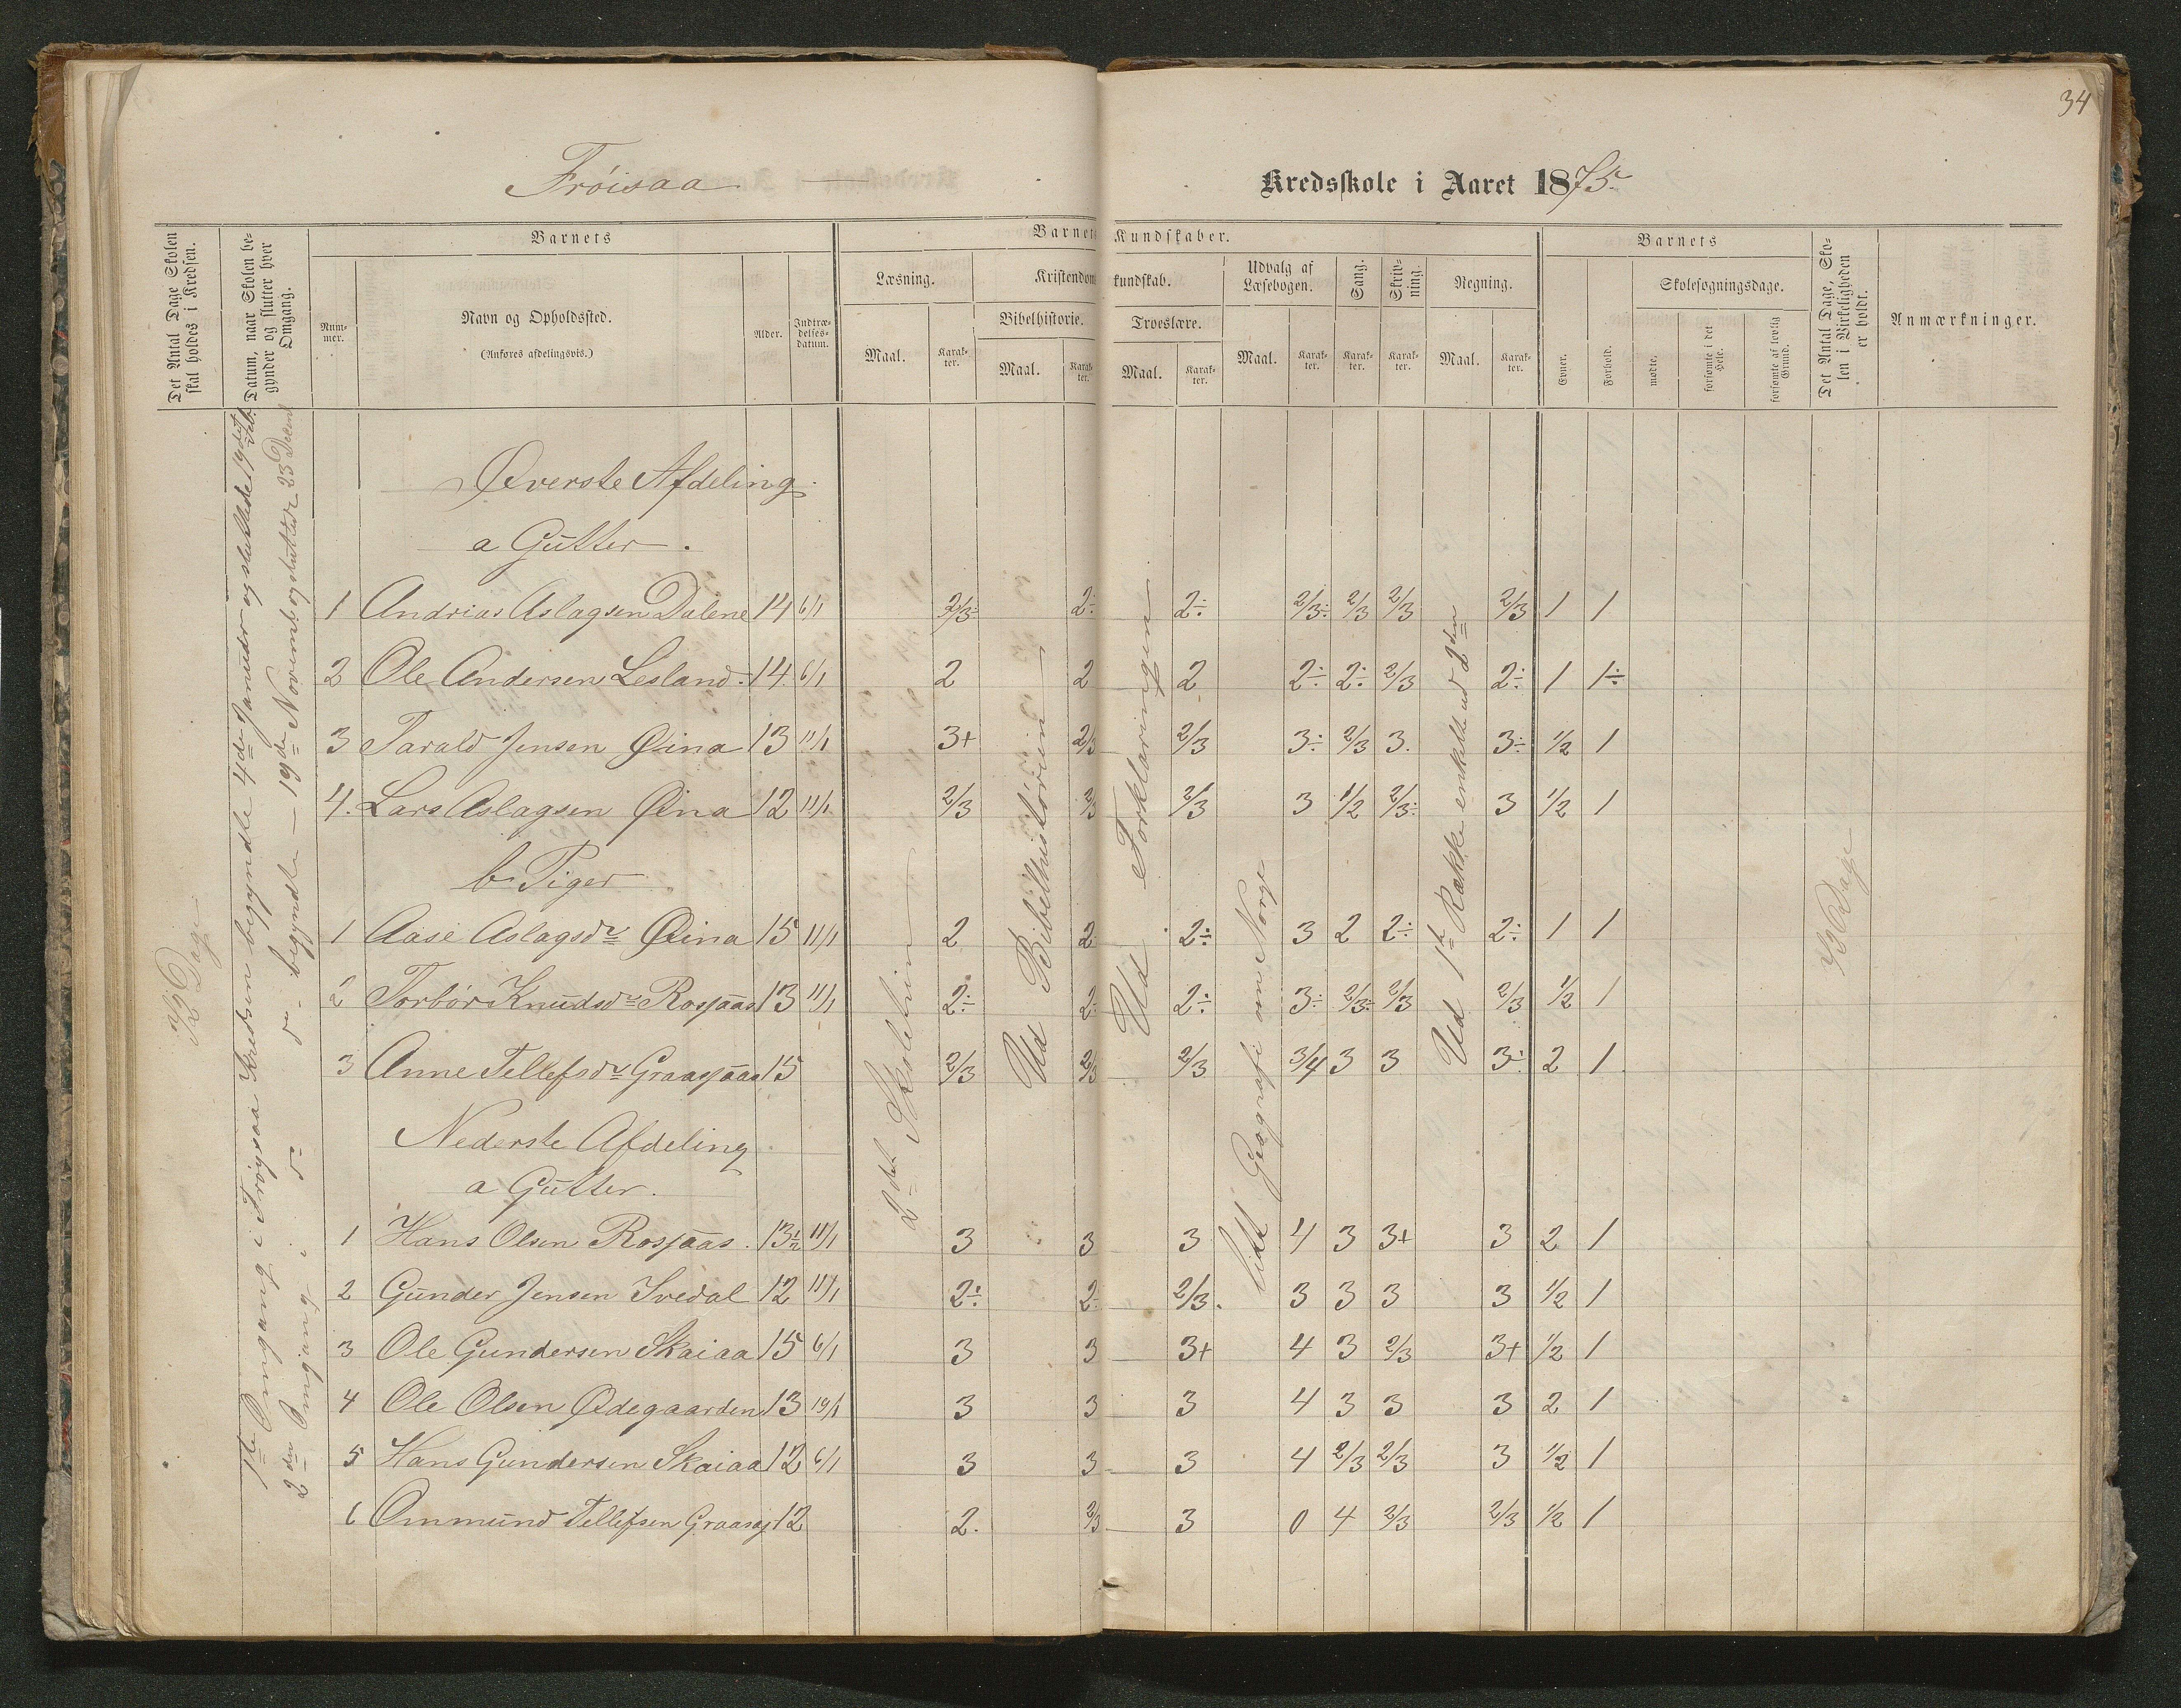 34
Frøisaa Kredsskole i Aaret 1875.
Det Antal Dage Skolen skal holdes i Kredsen.
Datum, naar Skolen begynder og slutter hver Omgang.
Barnets
Num-mer.
Navn og Opholdssted.
(Anføres afdelingsvis.)
Alder.
Indtræ-delses-datum.
Barnets Kundskaber.
Læsning.
Maal.
Karak-ter.
Kristendomskundskab.
Bibelhistorie.
Maal.
Karak-ter.
Troeslære.
Maal.
Karak-ter.
Udvalg af Læsebogen.
Maal.
Karak-ter.
Sang.
Karak-ter.
Skriv-ning.
Karak-ter.
Regning.
Maal.
Karak-ter.
Barnets
Evner.
Forhold.
Skolesøgningsdage.
mødte.
forsømte i det Hele.
forsømte af lovlig Grund.
Det Antal Dage, Sko-len i Virkeligheden er holdt.
Anmærkninger.
1ste Omgang i Frøysaa Kredsen begyndte 4de Januar og sluttede 19det Feb.
2den Omgang i do do begyndte – 19de Novemb. og sluttede 23 Decemb
Dage
2det Skoletrin
Ud Bibelhistorien
Ud Forklaringen
Lidt Geografi om Norge
Ud 1ste Række enkelte ud 2den
Dage
Øverste Afdeling
a Gutter.
1 Andrias Aslagsen Dalene 14 6/1 2/3÷ 2÷ 2÷ 2/3÷ 2/3 2/3 2/3 1 1
2 Ole Andersen Lesland 14 6/1 2 2 2 2÷ 2÷ 2/3 2÷ 1 1÷
3 Tarald Jensen Øina 13 11/1 3+ 2/3 2/3 3÷ 2/3 3. 3÷ 1/2 1
4. Lars Aslagsen Øina 12 11/1 2/3 2/3 2/3 3 1/2 2/3÷ 3 1/2 1
b Piger
1 Aase Aslagsdr Øina 15 11/1 2 2 2÷ 3 2 2÷ 2÷ 1 1
2 Torbør Knudsdr Rosjaas 13 11/1 2÷ 2÷ 2÷ 3÷ 2/3÷ 2/3 2/3 1/2 1
3 Anne Tellefsdr Graasjaas 15 2/3 2/3 2/3 3/4 3 3 3÷ 2 1
Nederste Afdeling
a Gutter.
1 Hans Olsen Rosjaas. 13½ 11/1 3 3 3 4 3 3+ 3 2 1
2 Gunder Jensen Ivedal 12 11/1 2÷ 2÷ 2/3. 3 3 3 3 1/2 1
3 Ole Gundersen Skaiaa 15 6/1 3 3 3+ 4 3 2/3 3+ 1/2 1
4 Ole Olsen Ødegaarden 13 19/1 3 3 3 4 3 3 3 2 1
5 Hans Gundersen Skaiaa 12 6/1 3 3 3 4 2/3 2/3 3 1/2 1
6 Ommund Tellefsen Graasaj 12 2. 2/3 3 0 4 2/3 2/3 1/2 1